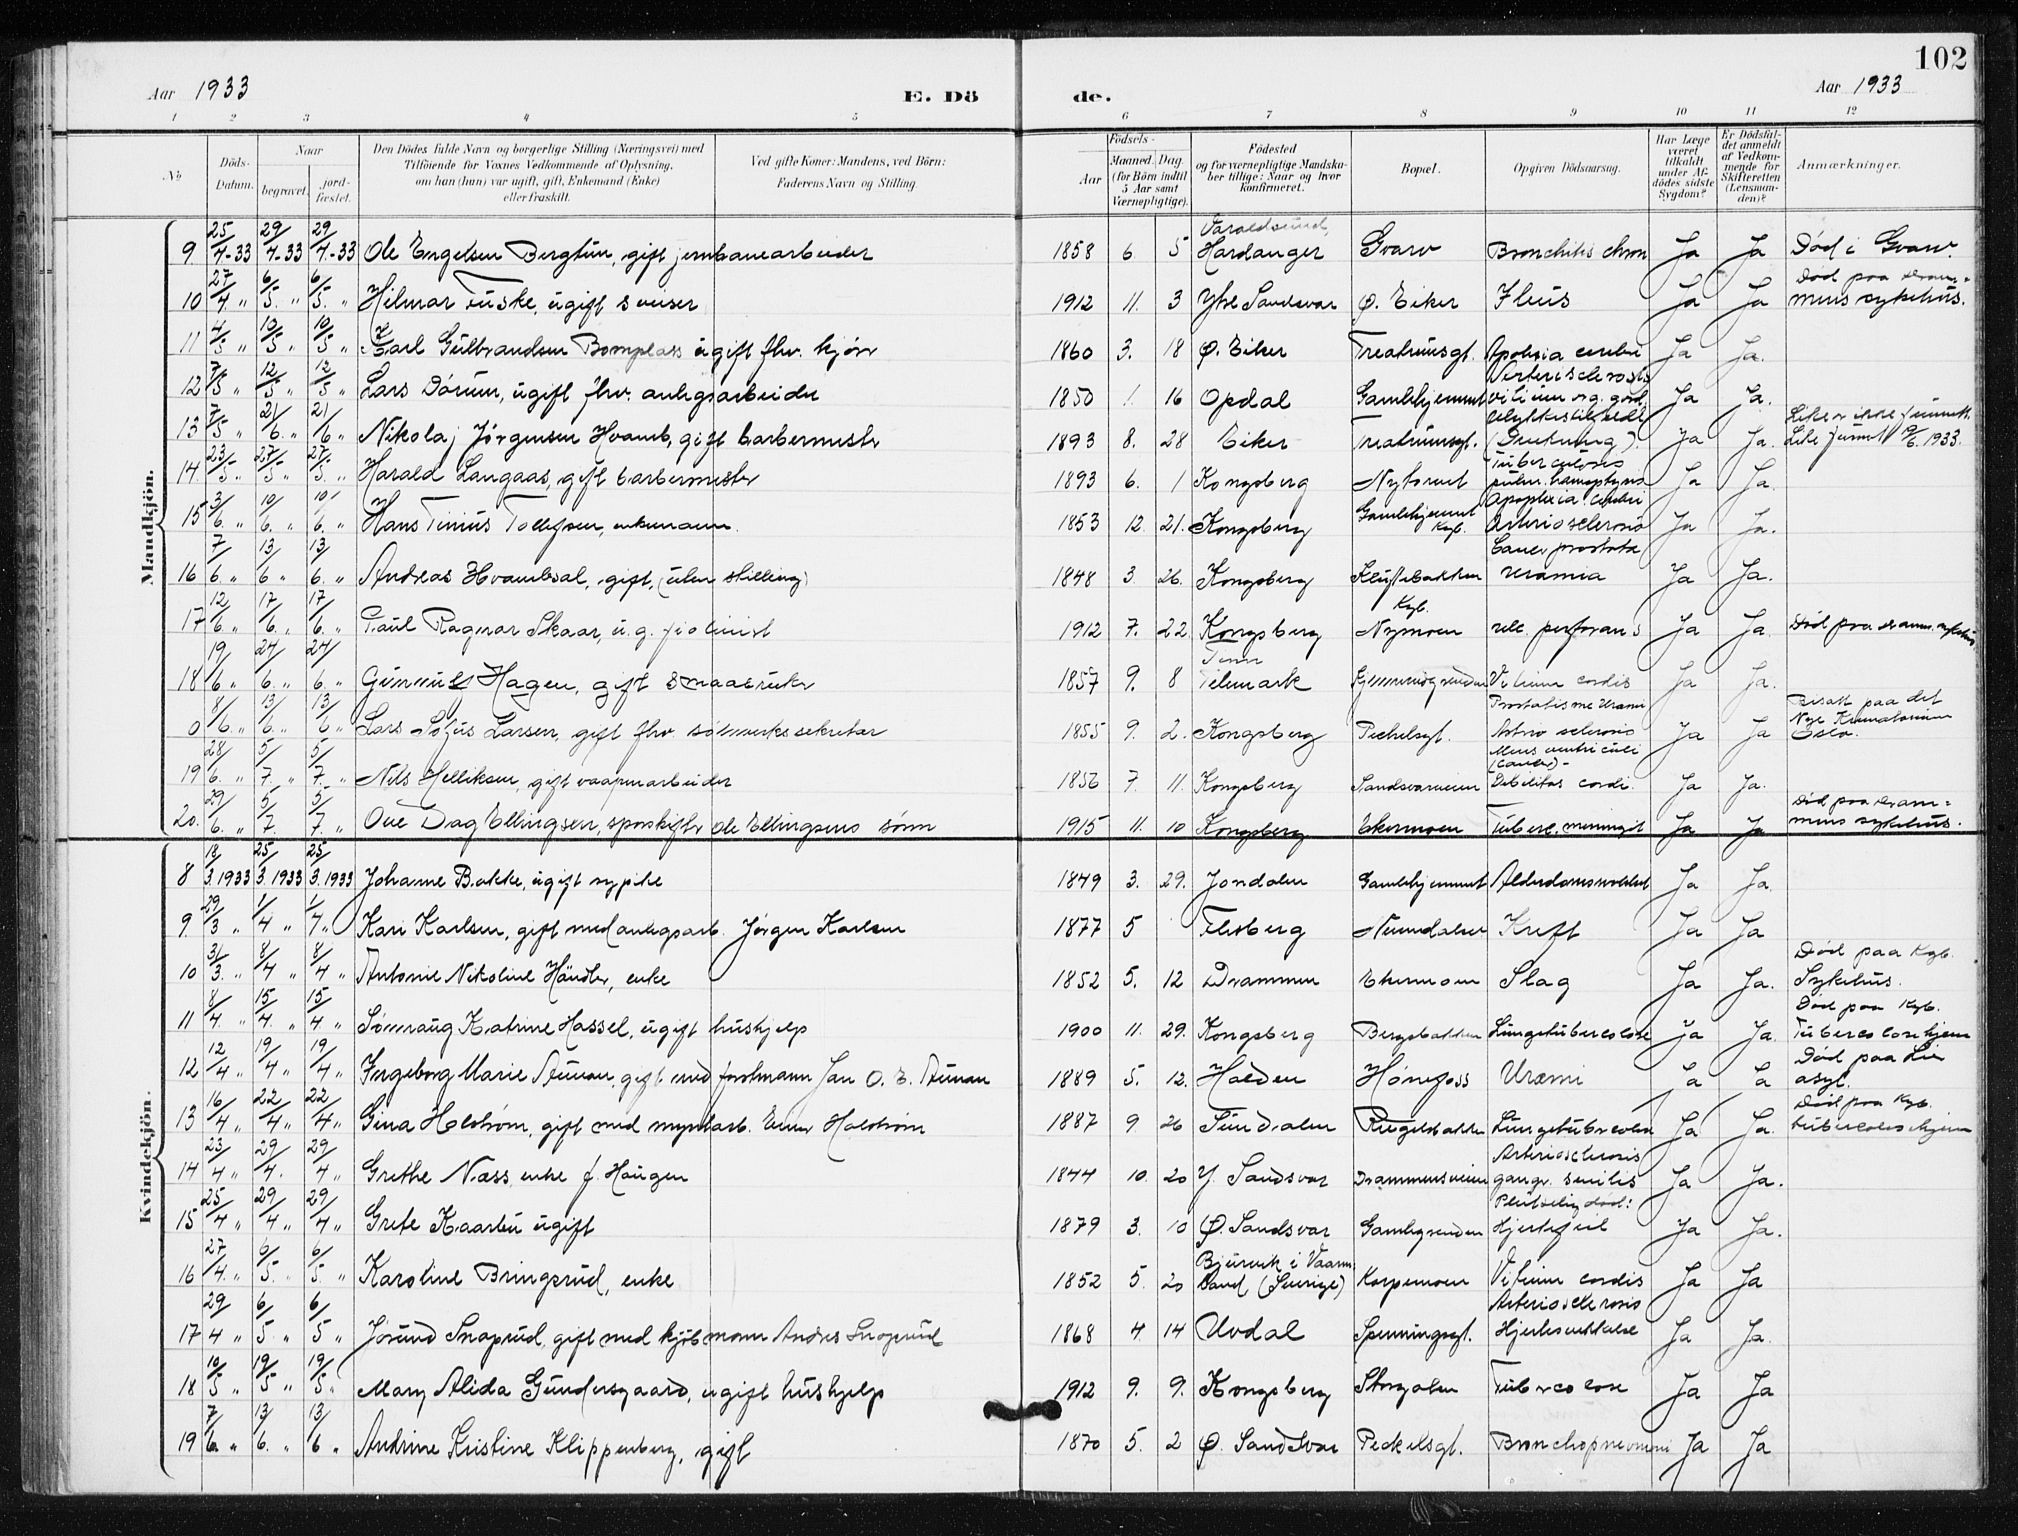 102
Aar 1933
E. Dö
de.
Aar 1933
1 2 3 4 5 6 7 8 9 10 11 12
No
Döds-Datum.
Naar
begravet.
jord-fæstet.
Den Dödes fulde Navn og borgerlige Stilling (Næringsvei) med
Tilföiende for Voxnes Vedkommende af Oplysning,
om han (hun) var ugift, gift, Enkemand (Enke)
eller fraskilt.
Ved gifte Koner: Mandens, ved Börn:
Faderens Navn og Stilling.
Födsels-
Aar
Maaned. Dag.
(for Börn indtil
5 Aar samt
Værnepligtige).
Födested
og for værnepligtige Mandska-
ber tillige: Naar og hvor
konfirmeret.
Bopæl.
Opgiven Dödsaarsag.
Har Læge
været
tilkaldt
under Af-
dödes sidste
Sygdom?
Er Dödsfal-
det anmeldt
af Vedkom-
mende for
Skifteretten
(Lensman-
den)?
Anmærkninger.
Mandkjön.
9 25/4-33 29/4-33 29/4-33 Ole Engelsen Bergtun, gift jernbanearbeider 1858 6. 5 Varaldsund, Hardanger Gvarv Bronchitis chron Ja Ja Död i Gvarv.
10 27/4 " 6/5 " 6/5 " Hilmar Tuske, ugift sveiser 1912 11. 3 Ytre Sandsvær Ø. Eiker Ileus Ja Ja Död paa Drammens sykehus.
11 4/5 " 10/5 " 10/5 " Karl Gulbrandsen Bomplass ugift fhv. kjörer 1860 3. 18 Ø. Eiker Apoplexia cerebri Ja Ja.
12 7/5 " 12/5 " 12/5 " Lars Dörum, ugift fhv. anlegsarbeider 1850 1. 16 Opdal Gamlehjemmet Arteriosclerosis Ja Ja.
13 7/5 " 21/6 " 21/6 " Nikolaj Jörgensen Hvamb, gift barbermester 1893 8. 28 Eiker (Drukning). Ja Ja. Liket ikke funnet. Liket funnet 19/6. 1933.
14 23/5 " 27/5 " 27/5 " Harald Langaas, gift barbermester 1893 6. 1 Kongsberg Nytorvet Tuberculosis pulm. hæmoptysis Ja Ja.
15 3/6 " 10/6 " 10/6 " Hans Tinius Tollefsen, enkemann. 1853 12. 21. Kongsberg Gamlehjemmet Kgb. Apoplexia cerebri Arteriosclerosis Ja Ja.
16 7/6 " 13/6 " 13/6 " Andreas Hvambsal, gift, (uten stilling) 1848 3. 26. Kongsberg Kluftebakken Cancer prostata Uræmia Ja Ja.
17 12/6 " 17/6 " 17/6 " Paul Ragnar Skaar, u.g. fiolinist 1912 7. 22. Kongsberg Kgb. Nymoen ulc. perforans Ja Ja. Död paa Dramm. sykehus.
18 19/6 " 24/6 " 24/6 " Gunnulf Hagen, gift smaabruker 1857 9. 8 Tinn Telemark Vitium cordis Ja Ja.
0 8/6 " 13/6 " 13/6 " Lars Sofus Larsen, gift fhv. sölvverkssekretær 1855 9. 2. Kongsberg Peckelsgt. Prostatisme Uræmi Arterio sclerosis Ja Ja Bisatt paa det Nye Krematorium Oslo.
19 28/6. " 5/7. " 5/7. " Nils Helliksen, gift vaapenarbeider 1856 7. 11. Kongsberg Sandsværveien Ulcus ventriculi (cancer) - Debilitas cordi. Ja Ja.
20. 29/6. " 5/7. 5/7. " Ove Dag Ellingsen, sporskifter Ole Ellingsens sönn 1915 11. 10 Kongsberg Ekermoen Tuberc. meningit Ja Ja Död paa Drammens sykehus.
Kvindekjön.
8 18/3. 1933 25/3. 1933 25/3. 1933 Johanne Bakke, ugift sypike 1849 3. 29. Jondalen Gamlehjemmet Alderdomssvakhet Ja Ja.
9. 29/3 " 1/4 " 1/4 " Kari Karlsen, gift med anlegsarb. Jörgen Karlsen 1877 5 Flesberg Numedalsv Kreft Ja Ja
10 31/3. " 8/4 " 8/4 " Antonie Nikoline Händler, enke 1852 5. 12 Drammen Ekermoen Slag Ja Ja. Död paa Kgb. Sykehus.
11 8/4. " 15/4. " 15/4. " Sönnaug Katrine Hassel, ugift hushjelp 1900 11. 29. Kongsberg Bergsbakken Lungetuberculose Ja Ja. Död paa Kgb. Tuberculosehjem
12 12/4 " 19/4 " 19/4 " Ingeborg Marie Aunan, gift med forstmann Jan O. E. Aunan 1889 5. 12. Halden Hönefoss Uræmi Ja Ja Död paa Lier asyl.
13 16/4 " 22/4 " 22/4 " Gina Holström, gift med myntarb. Einar Holström 1887 9. 26 Sundalen Rugelbakken Lungetuberculose Ja Ja. Död paa Kgb. tuberculosehjem
14 23/4 " 29/4. 29/4 " Grethe Næss, enke f. Haugen 1844 10. 20 Y. Sandsvær Drammensveien Arteriosclerosis gangr. senilis Ja Ja.
15 25/4 " 29/4 " 29/4 " Grete Kaarbu ugift 1879 3. 10 Ø. Sandsvær Gamlegrenden Plutselig död: Hjertefeil Ja Ja.
16 27/4. " 6/5. " 6/5. " Karoline Bringsrud, enke 1852 5. 20 Bjurvik i Værmland (Sverige) Korpemoen Vitium cordis Ja Ja
17 29/4 " 6/5 " 6/5 " Jorund Snaprud, gift med kjöbmann Andres Snaprud 1868 4. 14 Uvdal Spenningsgt. Arteriosclerosis Hjertesvekkelse Ja Ja.
18 10/5 " 19/5 " 19/5 " Mary Alida Gundersgaard, ugift hushjelp 1912 9. 9. Kongsberg Storgaten Tuberculose Ja Ja
19 7/6. " 13/6. " 13/6 " Andrine Kristine Klippenberg, gift 1870 5. 2 Ø. Sandsvær Peckelsgt. Bronchopneumoni Ja Ja